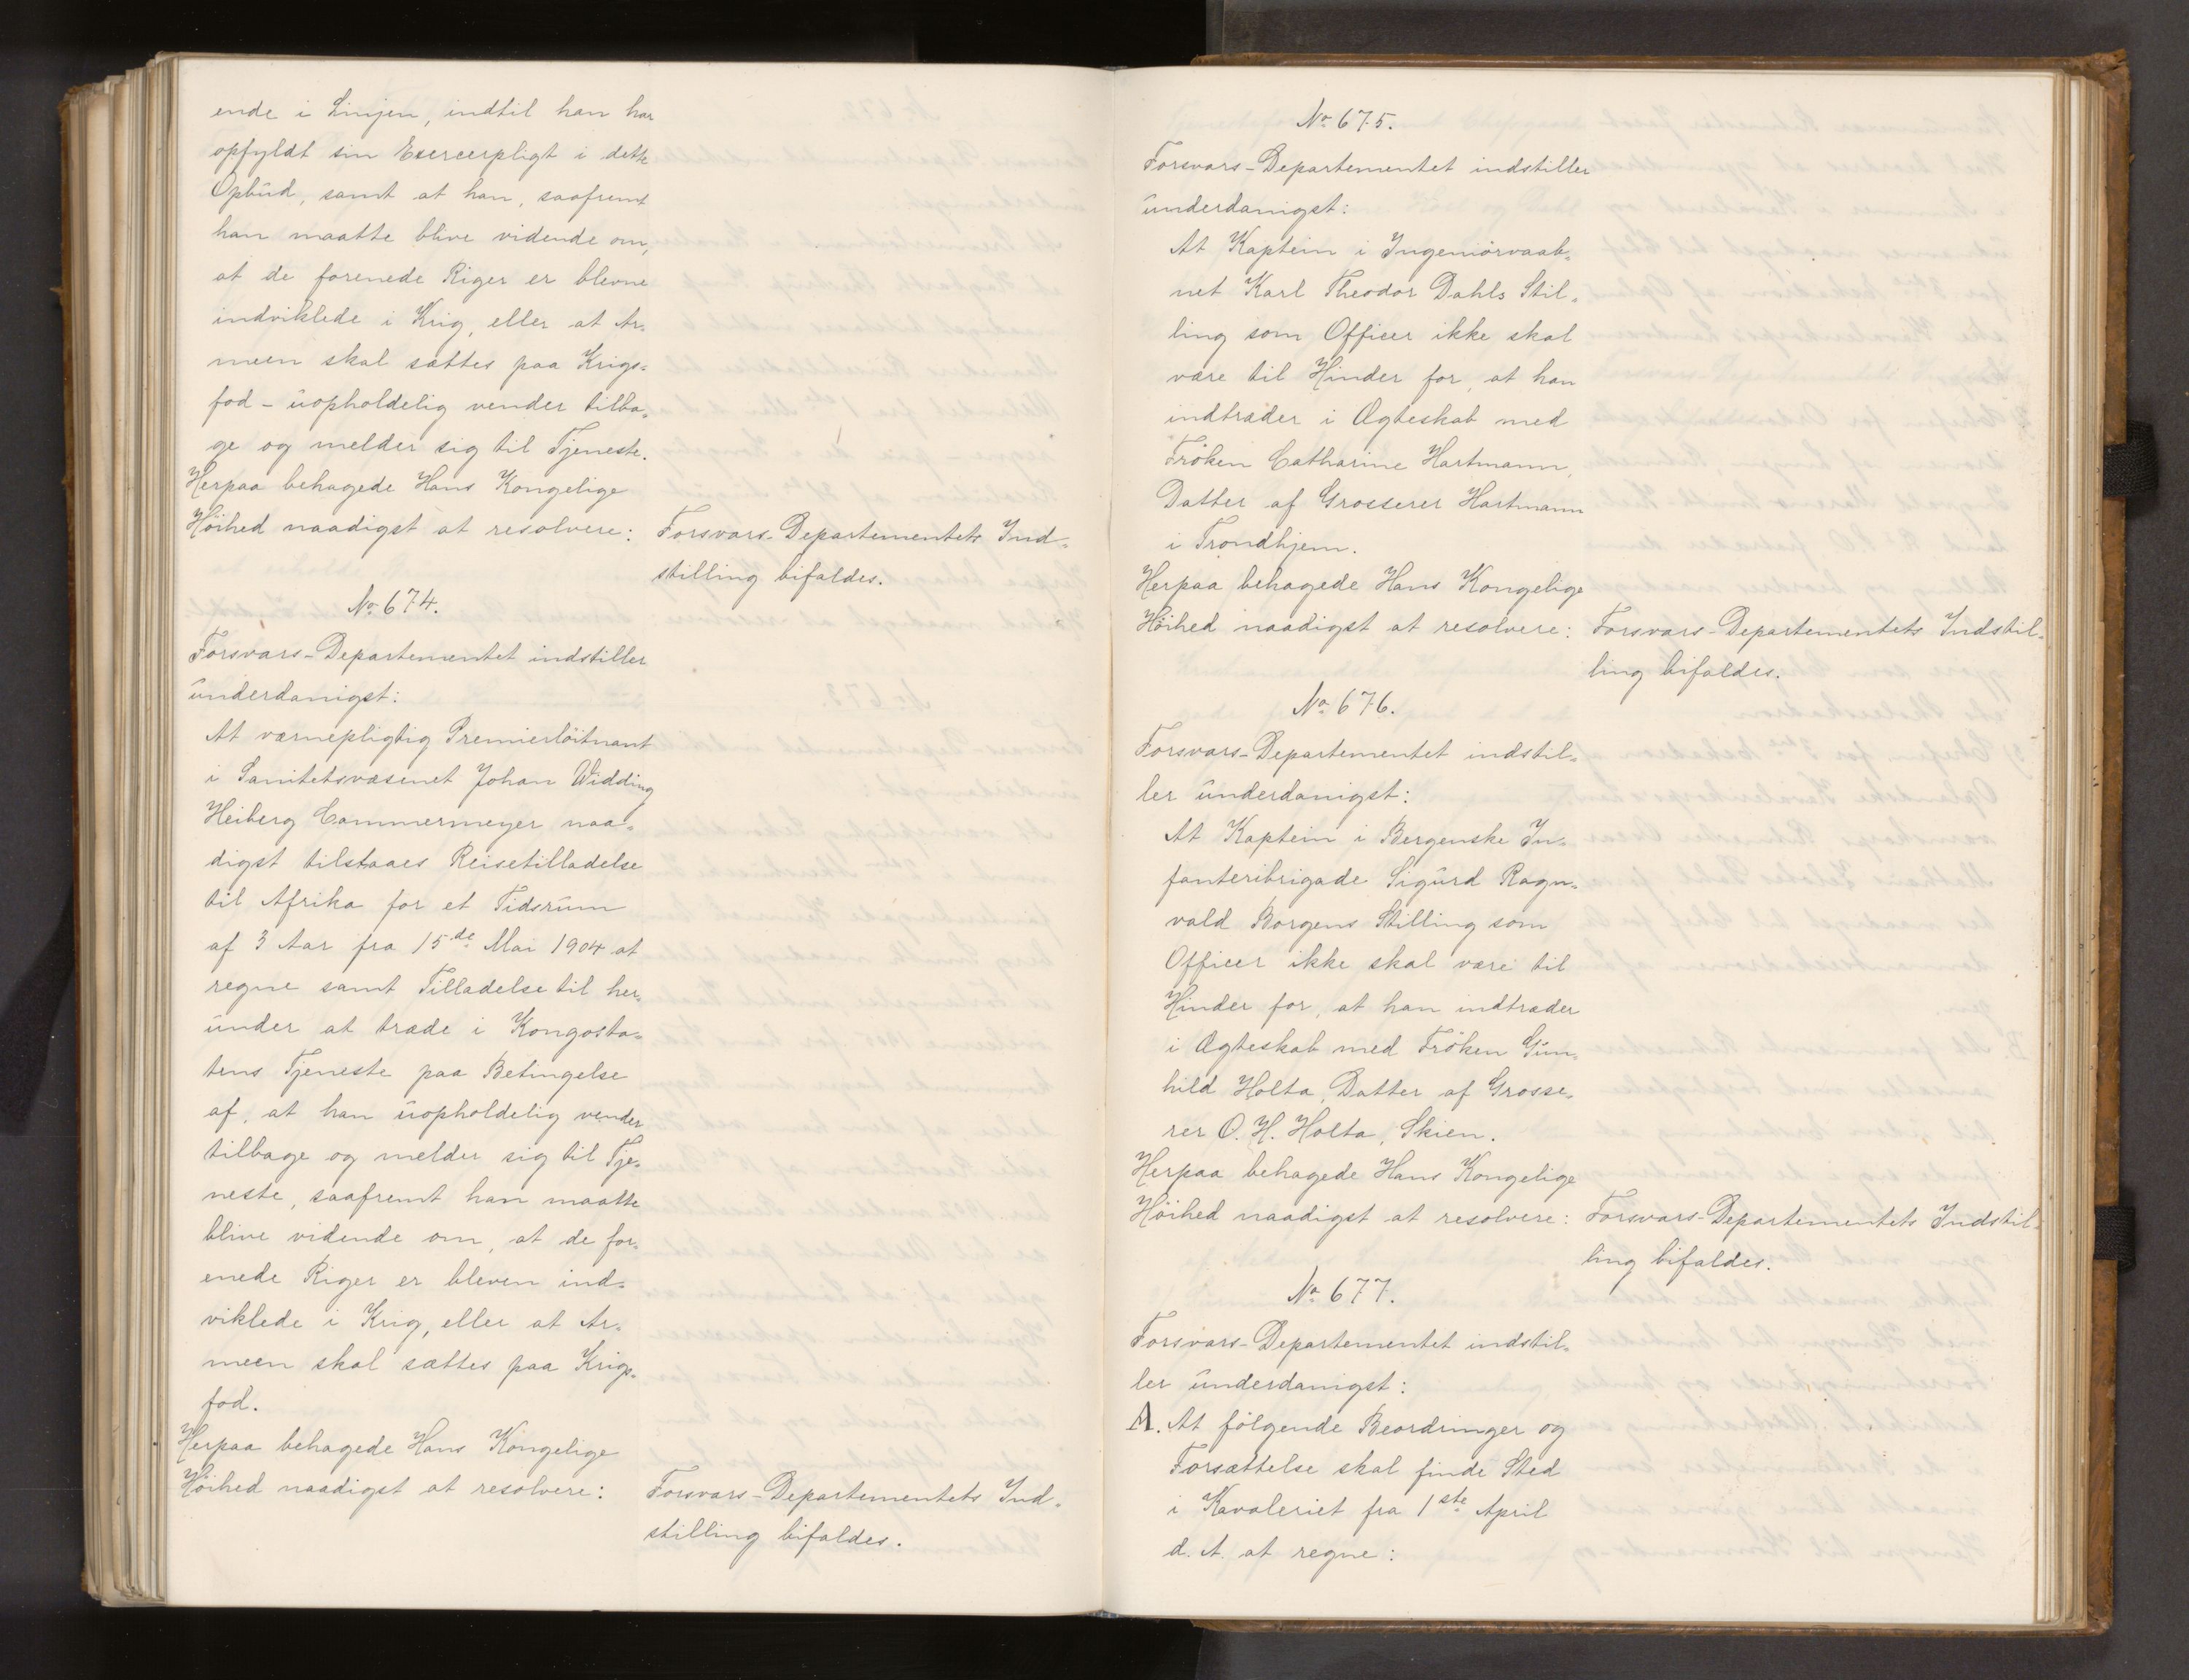 ende i Linjen, indtil han har
opfyldt sin Exercerpligt i dette
Opbud, samt at han, saafremt
han maatte blive vidende om,
at de forenede Riger er blevne
indviklede i Krig, eller at Ar-
meen skal sættes paa Krigs-
fod - uopholdelig vender tilba-
ge og melder sig til Tjeneste.
Herpaa behagede Hans Kongelige
Höihed naadigst at resolvere:
Forsvars-Departementets Ind-
stilling bifaldes.
No 674.
Forsvars-Departementet indstiller
underdanigst:
At værnepligtig Premierlöitnant
i Sanitetsvæsenet Johan Widding
Heiberg Cammermeyer naa-
digst tilstaaes Reisetilladelse
til Afrika for et Tidsrum
af 3 Aar fra 15de Mai 1904 at
regne samt Tilladelse til her-
under at træde i Kongosta-
tens Tjeneste paa Betingelse
af, at han uopholdelig vender
tilbage og melder sig til Tje-
neste, saafremt han maatte
blive vidende om, at de for-
enede Riger er bleven ind-
viklede i Krig, eller at Ar-
meen skal sættes paa Krigs-
fod.
Herpaa behagede Hans Kongelige
Höihed naadigst at resolvere:
Forsvars-Departementets Ind-
stilling bifaldes.
No 675.
Forsvars-Departementet indstiller
underdanigst:
At Kaptein i Ingeniörvaab-
net Karl Theodor Dahls Stil-
ling som Officer ikke skal
være til Hinder for, at han
indtræder i Ægteskab med
Fröken Catharine Hartmann,
Datter af Grosserer Hartmann
i Trondhjem.
Herpaa behagede Hans Kongelige
Höihed naadigst at resolvere:
Forsvars-Departementets Indstil-
ling bifaldes.
No 676.
Forsvars-Departementet indstil-
ler underdanigst:
At Kaptein i Bergenske In-
fanteribrigade Sigurd Ragn-
vald Borgens Stilling som
Officer ikke skal være til
Hinder for, at han indtræder
i Ægteskab med Fröken Gun-
hild Holta, Datter af Grosse-
rer O. H. Holta, Skien.
Herpaa behagede Hans Kongelige
Höihed naadigst at resolvere:
Forsvars-Departementets Indstil-
ling bifaldes.
No 677.
Forsvars-Departementet indstil-
ler underdanigst:
A. At fölgende Beordringer og
Forsættelse skal finde Sted
i Kavaleriet fra 1ste April
d. A. at regne: